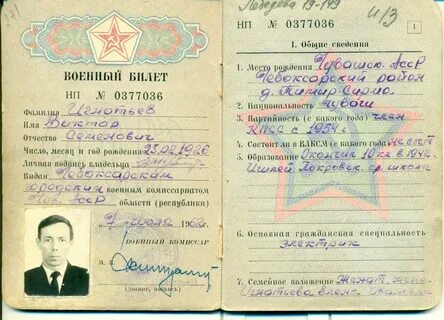 НП № 0377036
1
ВОЕННЫЙ БИЛЕТ
НП № 0377036
Фамилия Игнатьев
Имя Виктор
Отчество Семенович
Число, месяц и год рождения 25.02.1926
Личная подпись владельца
Выдан Чебоксарским
городским военным комиссариатом
области (республики)
ВОЕННЫЙ КОМИССАР
М. П.
(звание, подпись)
I. Общие сведения
1. Место рождения Чувашск. АССР
Чебоксарский район
д.
2. Национальность Чуваш
3. Партийность (с какого года) член
КПСС с 1954 г.
4. Состоял ли в ВЛКСМ (с какого года)
5. Образование Окончил 10 кл. в
Покровск. ср. школы
6. Основная гражданская специальность
электрик
7. Семейное положение Женат, жена
Игнатьева Ивановна